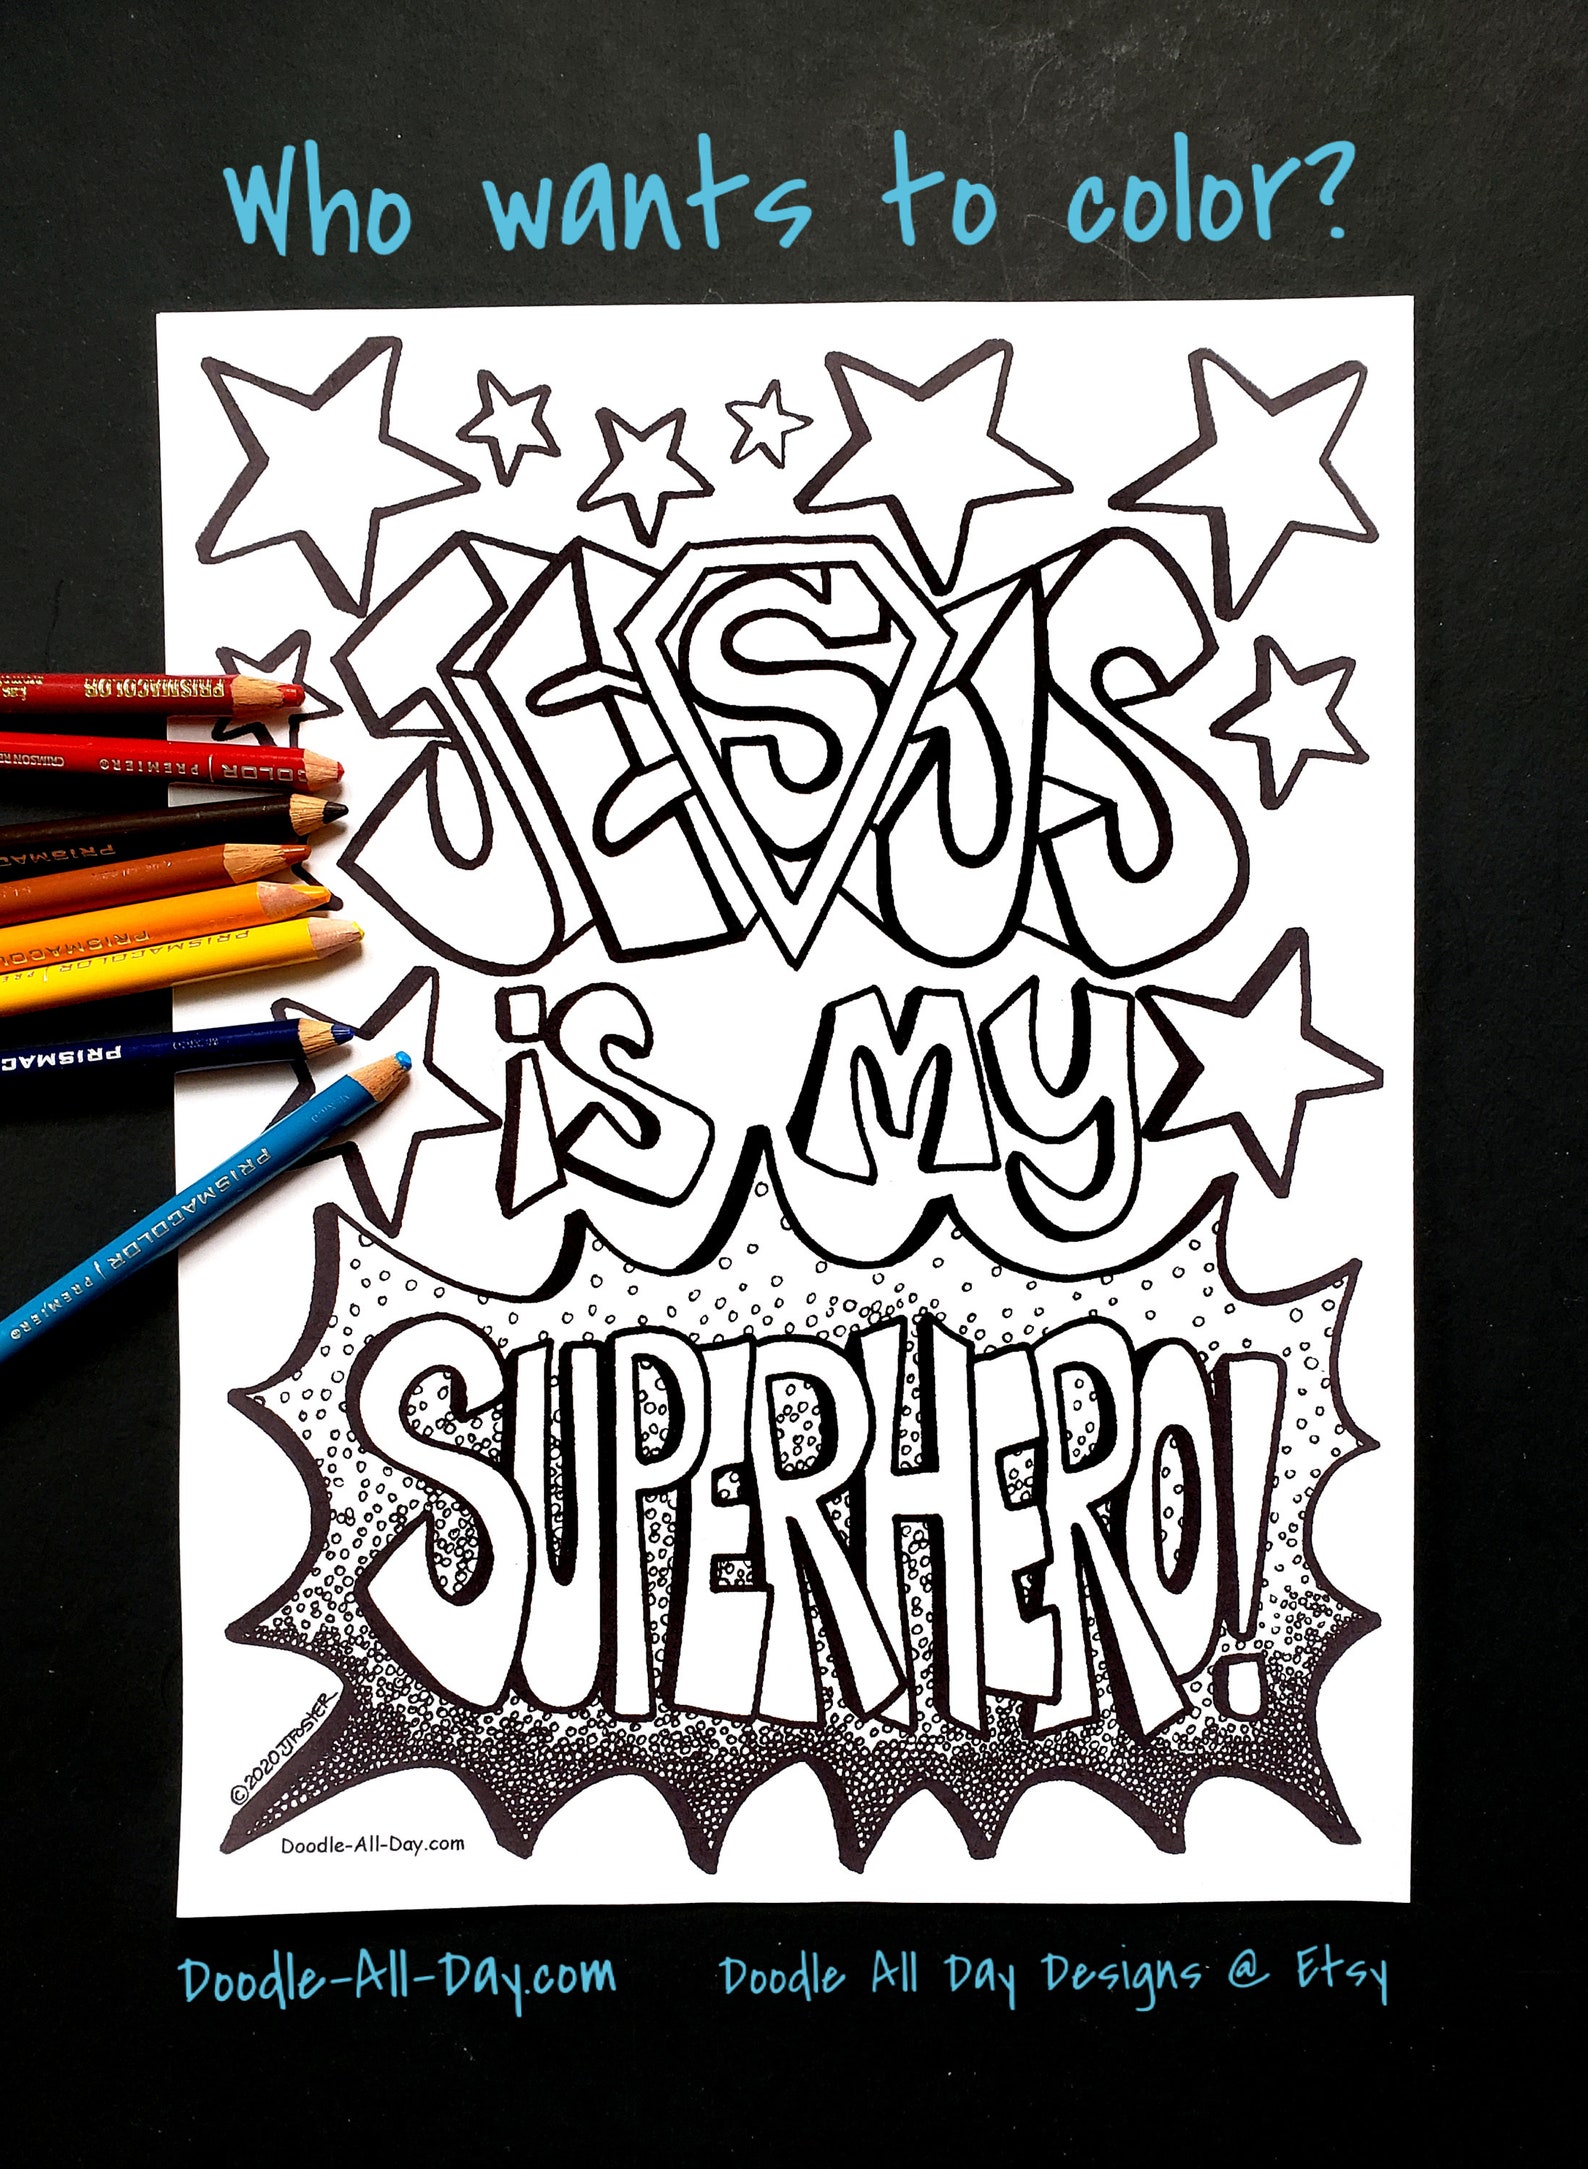 Who wants to color?
JESUS
is My
SUPERHERO!
PRISMACOLOR
CRIMSON RE
COLOR PREMIER®
PRISMACOLOR
PRISMACOL
PRISMACOLOR
PRISMAC
PRISMACOLOR PREMIER®
©2020 JJFOSTER
Doodle-All-Day.com
Doodle-All-Day.com
Doodle All Day Designs @ Etsy